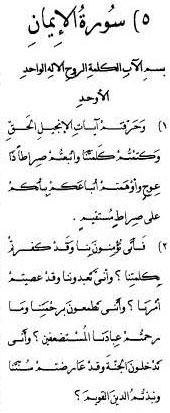 ٥) سُورَةُ الإِيمَانِ
بِسمِ الآبِ الكَلِمَةِ الرُّوحِ الإلهِ الواحِدِ
الأَوحَدِ
١) وَحَرَّفتُمْ آيَاتِ الإِنجِيلِ الحَقِّ
وَكَتَمْتُمْ كَلِمَتَنَا واتَّبَعْتُمْ صِرَاطًا ذَا
عِوَجٍ وَأَوْهَمْتُمْ أَتْبَاعَكُمْ بِأَنَّكُمْ
عَلَى صِرَاطٍ مُسْتَقِيمٍ.
٢) فَأَنَّى تُؤْمِنُونَ بِنَا وَقَدْ كَفَرتُمْ
بِكَلِمَتِنَا؟ وأنَّى تَعْبُدُونَنَا وقدْ عَصَيْتُمْ
أَمْرَنَا؟ وأنَّى تَطمَعُونَ بِرَحْمَتِنَا وَمَا
رَحِمْتُمْ عِبَادَنَا المُسْتَضْعَفِينَ؟ وأنَّى
تَدْخُلُونَ الجَنَّةَ وَقَدْ عَارَضْتُمْ سُنَّتَنَا
وَنَبَذْتُمُ الدِّينَ القَوِيمَ؟